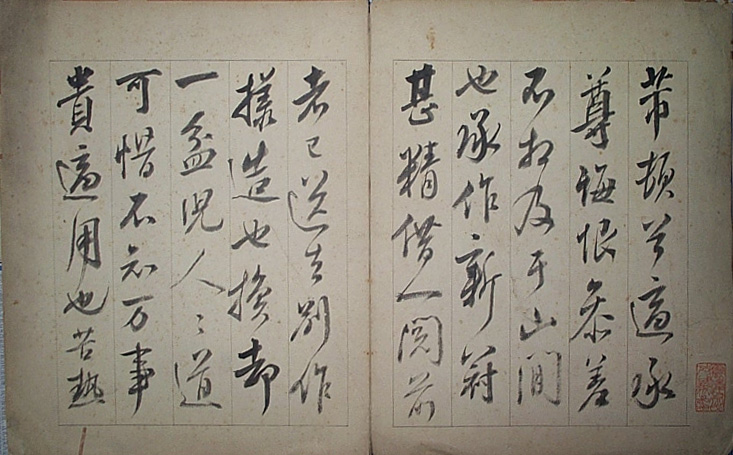 芾頓首適承
尊誨恨參差
不相及于山間
也承作新
甚精借人閱前
者已送去別作
樣造也換却
一盆人〻道
可惜不知万事
貴適用也苦熱